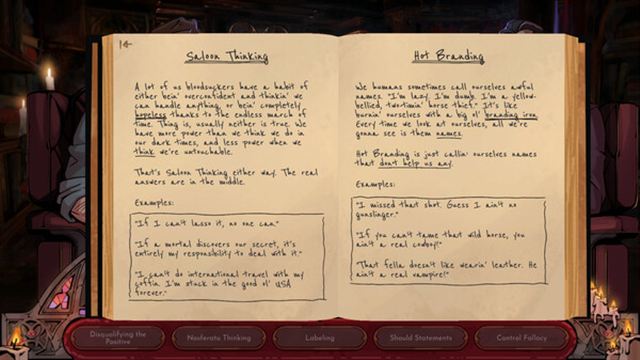 Saloon Thinking
A lot of us bloodsuckers have a habit of
either bein' overconfident and thinkin' we
can handle anything, or bein' completely
hopeless thanks to the endless march of
time. Thing is, usually neither is true. We
have more power than we think we do in
our dark times, and less power when we
think we're untouchable.
That's Saloon Thinking either way. The real
answers are in the middle.
Examples:
"If I can't lasso it, no one can."
"If a mortal discovers our secret, it's
entirely my responsibility to deal with it."
"I can't do international travel with my
coffin. I'm stuck in the good ol' USA
forever."
Hot Branding
We humans sometimes call ourselves awful
names. "I'm lazy. I'm dumb. I'm a yellow-
bellied, two-timin' horse thief." It's like
burnin' ourselves with a big ol' branding iron.
Every time we look at ourselves, all we're
gonna see is them names.
Hot Branding is just callin' ourselves names
that don't help us any.
Examples:
"I missed that shot. Guess I ain't no
gunslinger."
"If you can't tame that wild horse, you
ain't a real cowboy!"
"That fella doesn't like wearin' leather. He
ain't a real vampire!"
Disqualifying the
Positive
Nosferatu Thinking
Labeling
Should Statements
Control Fallacy